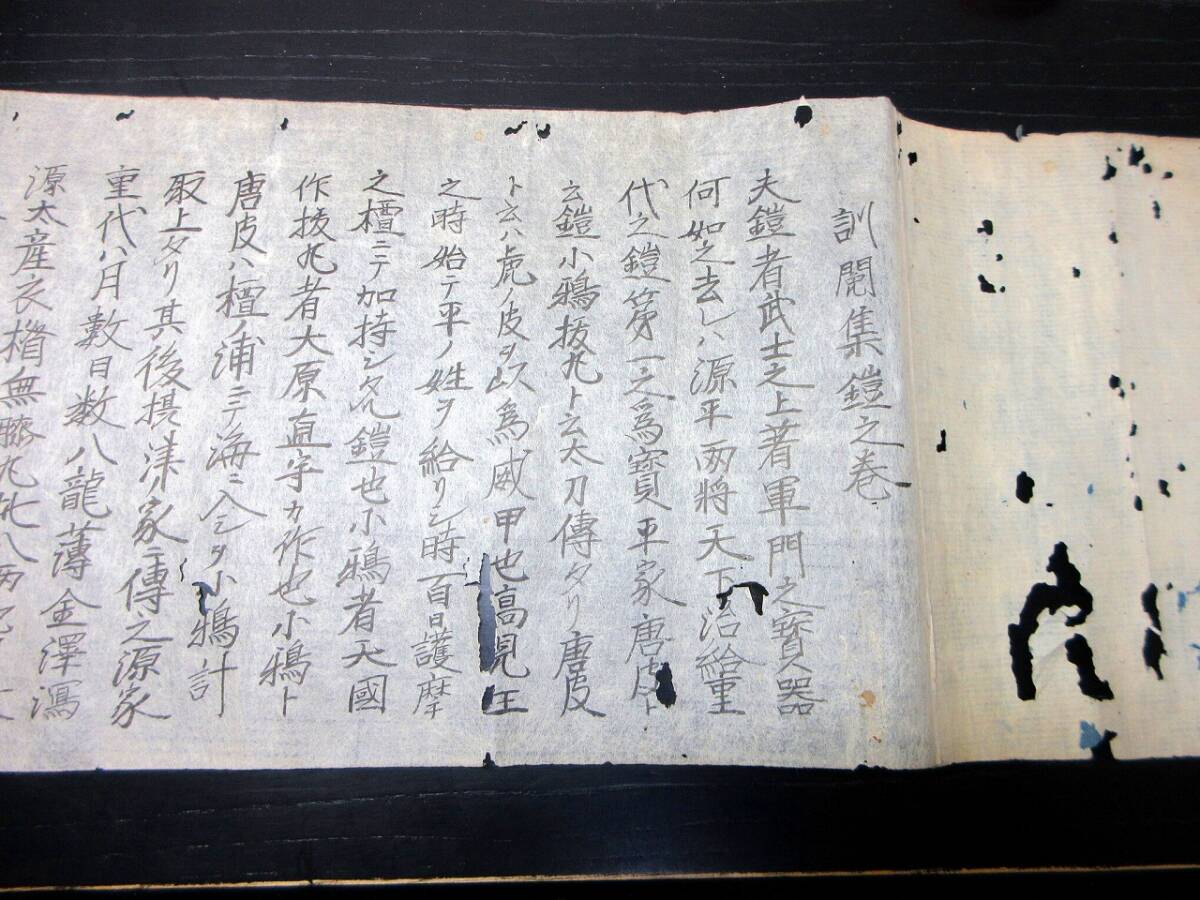 訓閲集鎧之巻
夫鎧者武士之上著軍門之寶器
何如之去レハ源平兩将天下治給重
代之鎧第一之為寶平家唐皮ト
云鎧小鴉抜丸ト云太刀傳タリ唐皮
ト云ハ虎ノ皮ヲ以為威甲也高見王
之時始テ平ノ姓ヲ給リシ時百日護摩
之檀ニテ加持シタル鎧也小鴉者天國
作抜丸者大原直守カ作也小鴉ト
唐皮ハ檀ノ浦ニテ海ニ入シヲ小鴉計
取上タリ其後摂津家ニ傳之源家
重代ハ月數日数八龍薄金澤瀉
源太産衣楯無膝丸